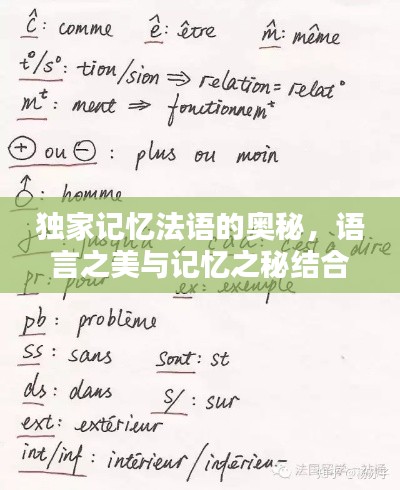 ĉ: comme ê: être m̂: même
t°/s°: tion/sion ⇒ relation = relat°
mᵗ: ment ⇒ fonctionnemᵗ
⊕ ou ⊖: plus ou moin
♂: homme
独家记忆法语的奥秘,语
言之美与记忆之秘结合
à dire
pr: pour ex: exemple
pb: problème
ss: sans sont: st
ds: dans s/: sur
ext: extérieur
int/inf: intérieur/inférieu-